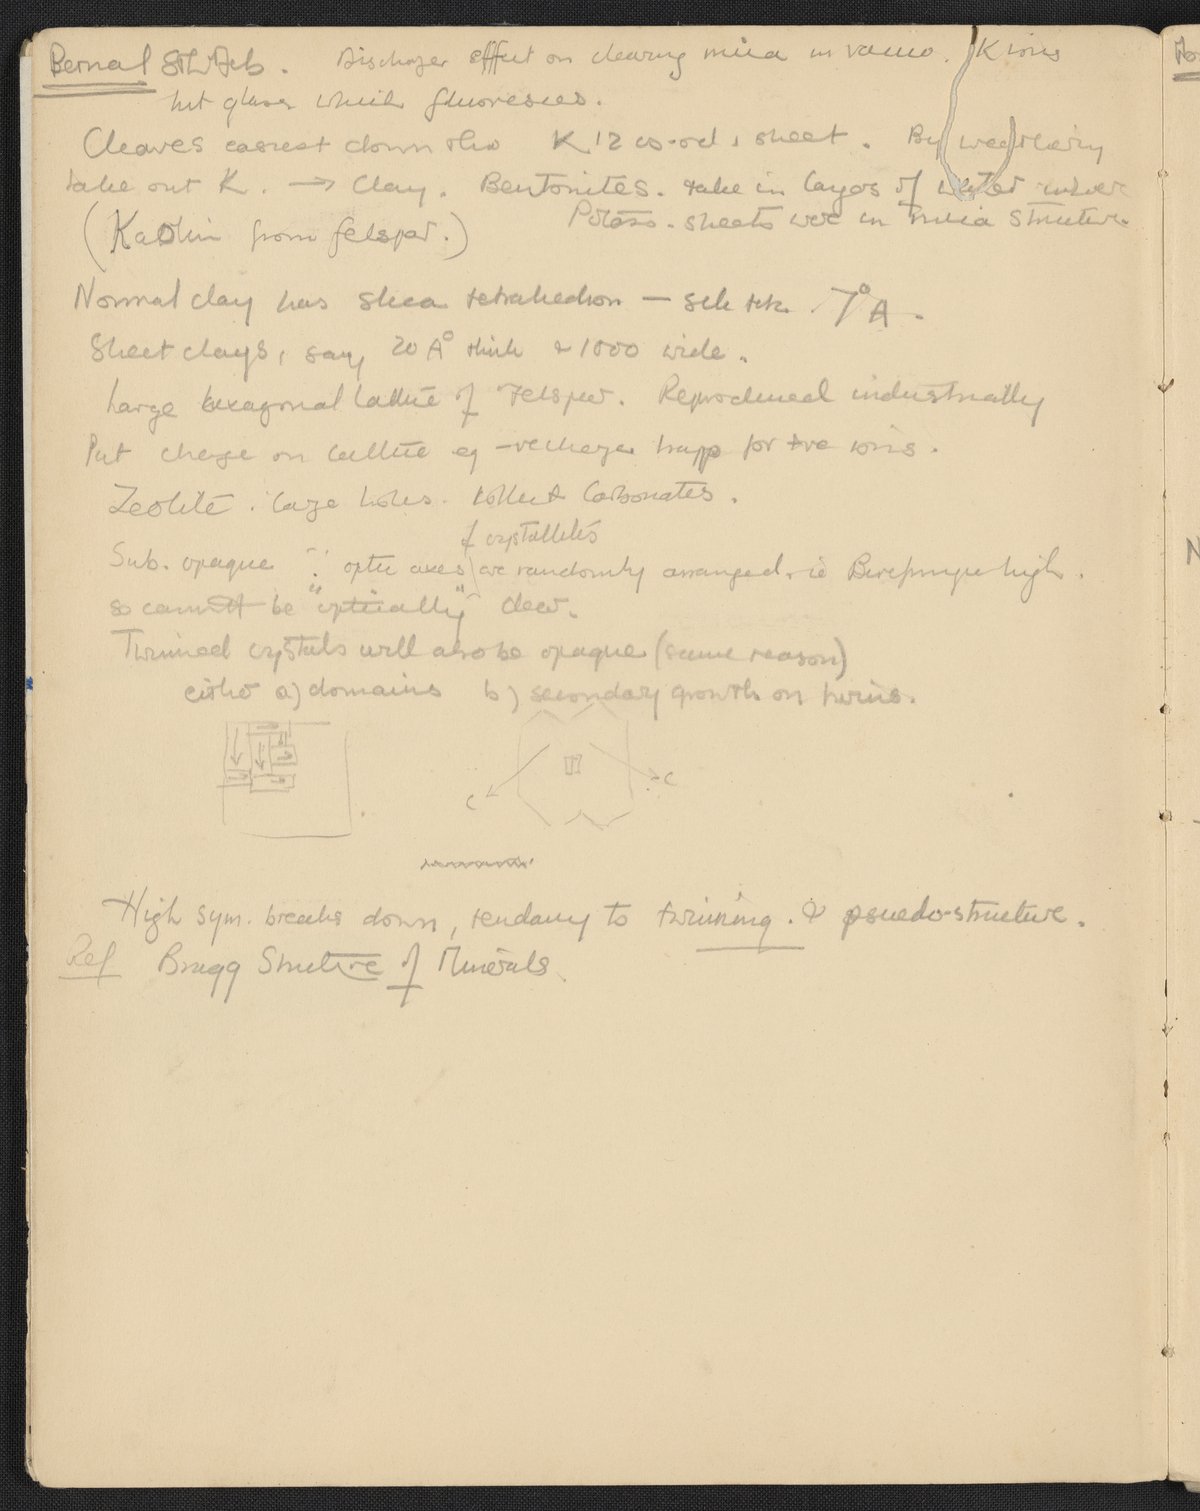 Bernal 8th Feb. Discharge effect on cleaving mica in vacuo. K ions
hit glass which fluoresces.
Cleaves easiest down the K 12 co-ord. sheet. By weathering
take out K. → Clay. Bentonites. take in layers of water where
(Kaolin from felspar.) Potass. sheets were in mica structure.
Normal clay has shea tetrahedron — 7°A.
Sheet clays, say, 20 A° thick & 1000 wide.
Large hexagonal lattice of Felspar. Reproduced industrially
Put charge on lattice eg -ve charge trapp for +ve ions.
Zeolite. large holes. Carbonates.
of crystallites
Sub. opaque ∵ optic axes are randomly arranged. ie Birefringe high.
so cannot be "optically" clear.
Twinned crystals will also be opaque (same reason)
either a) domains b) secondary growth on twins.
C C
High sym. breaks down, tendancy to twinning. & psuedo-structure.
Ref Bragg Structure of Minerals.